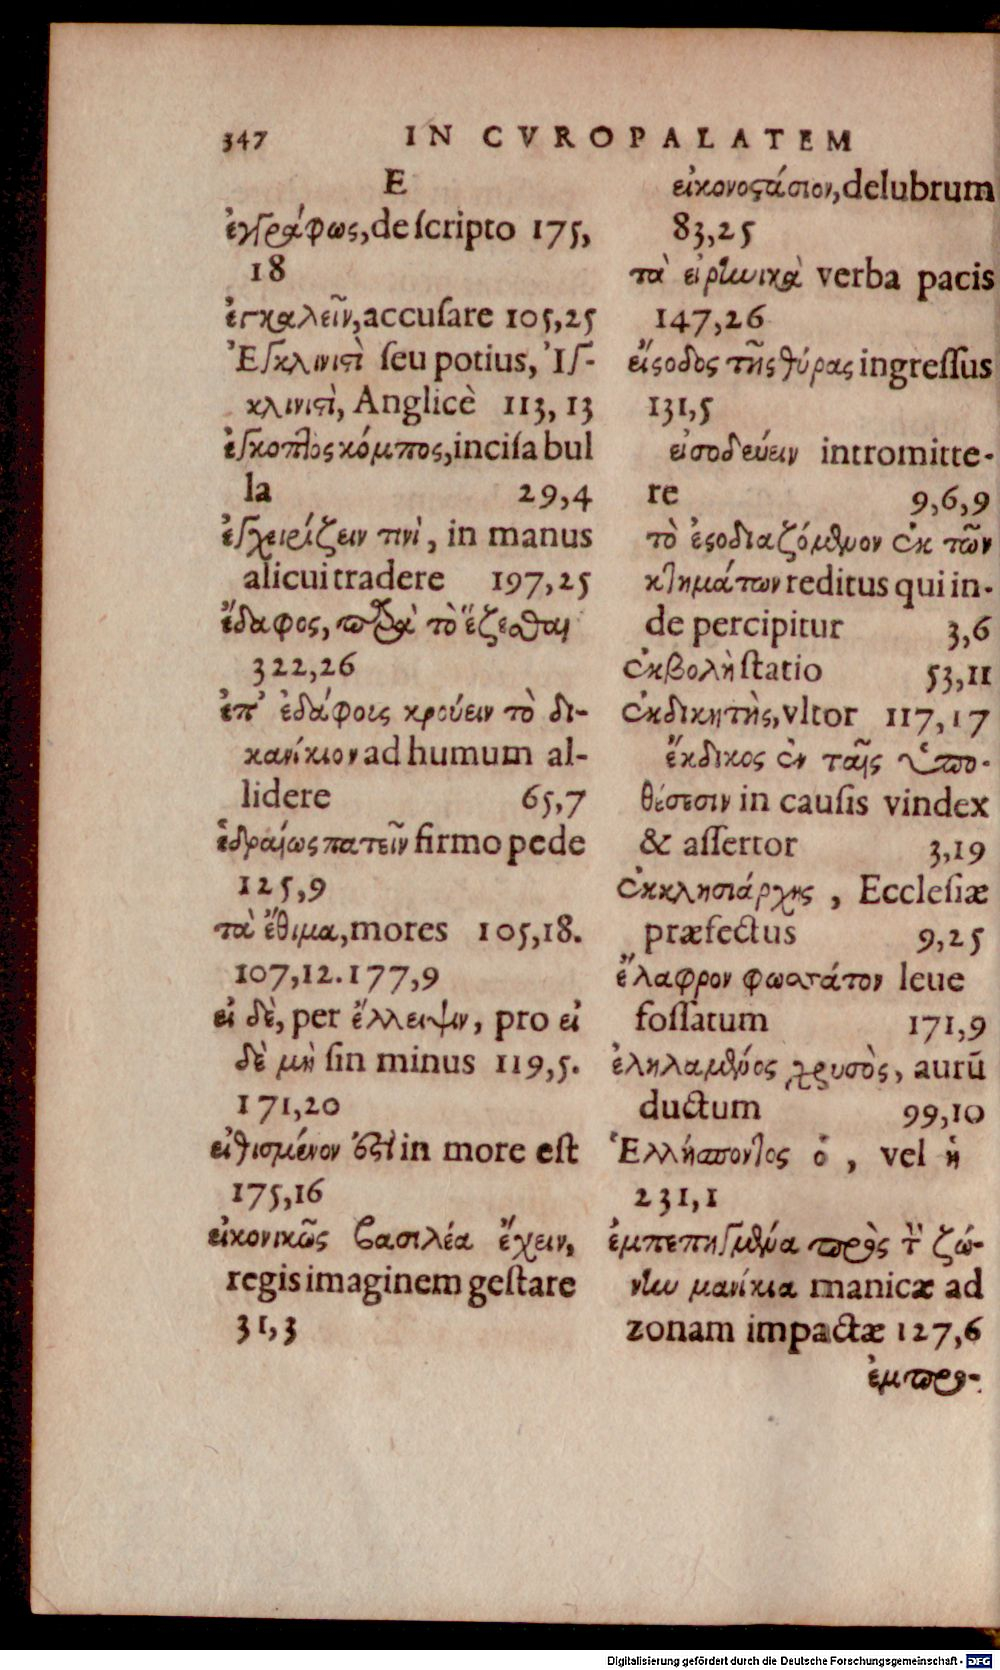 347 IN CVROPALATEM
E
ἐγγράφως, de scripto 175,
18
ἐγκαλεῖν, accuſare 105,25
Ἐγκλινιστὶ ſeu potius, Ἰγ-
κλινιστὶ, Anglicè 113,13
ἐγκοπτὸς κόμπος, inciſa bul
la 29,4
ἐγχειρίζειν τινὶ, in manus
alicui tradere 197,25
ἔδαφος, παρὰ τὸ ἕζεσθαι
322,26
ἐπ' ἐδάφοις κρούειν τὸ δι-
κανίκιον ad humum al-
lidere 65,7
ἑδραίως πατεῖν firmo pede
125,9
τὰ ἔθιμα, mores 105,18.
107,12.177,9
εἰ δὲ, per ἔλλειψιν, pro εἰ
δὲ μὴ ſin minus 119,5.
171,20
εἰθισμένον ἐστὶ in more est
175,16
εἰκονικῶς βασιλέα ἔχειν,
regis imaginem gestare
31,3
εἰκονοστάσιον, delubrum
83,25
τὰ εἰρηνικὰ verba pacis
147,26
εἴσοδος τῆς θύρας ingreſſus
131,5
εἰσοδεύειν intromitte-
re 9,6,9
τὸ ἐσοδιαζόμενον ἐκ τῶν
κτημάτων reditus qui in-
de percipitur 3,6
ἐκβολὴ statio 53,11
ἐκδικητὴς, vltor 117,17
ἔκδικος ἐν ταῖς ὑπο-
θέσεσιν in cauſis vindex
& aſſertor 3,19
ἐκκλησιάρχης, Eccleſiæ
præfectus 9,25
ἔλαφρον φωσσάτον leue
foſſatum 171,9
ἐληλαμένος χρυσὸς, aurū
ductum 99,10
Ἑλλήσποντος ὁ, vel ἡ
231,1
ἐμπεπηγμένα πρὸς τὴν ζώ-
νην μανίκια manicæ ad
zonam impactæ 127,6
ἐμπρο-
Digitalisierung gefördert durch die Deutsche Forschungsgemeinschaft - DFG